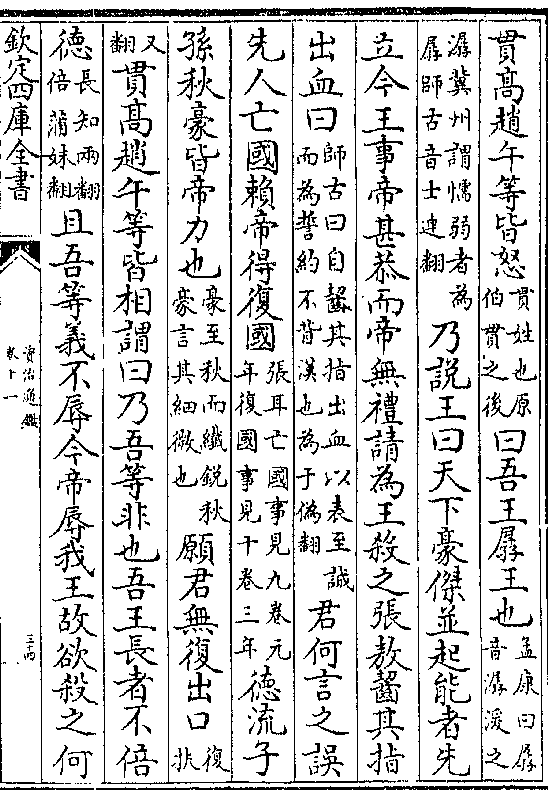 貫高趙午等皆怒貫姓也原伯貫之後曰吾王孱王也孟康曰孱音潺湲之
潺冀州謂懦弱者為孱師古音士連翻乃説王曰天下豪傑並起能者先
立今王事帝甚恭而帝無禮請為王殺之張敖齧其指
出血曰師古曰自齧其指出血以表至誠而為誓約不背漢也為于偽翻君何言之誤
先人亡國賴帝得復國張耳亡國事見九卷元年復國事見十卷三年德流子
孫秋豪皆帝力也豪至秋而纖鋭秋豪言其細微也願君無復出口復扶
又翻貫高趙午等皆相謂曰乃吾等非也吾王長者不倍
德長知兩翻倍蒲妹翻且吾等義不辱今帝辱我王故欲殺之何
欽定四庫全書
資治通鑑
卷十一
三十四